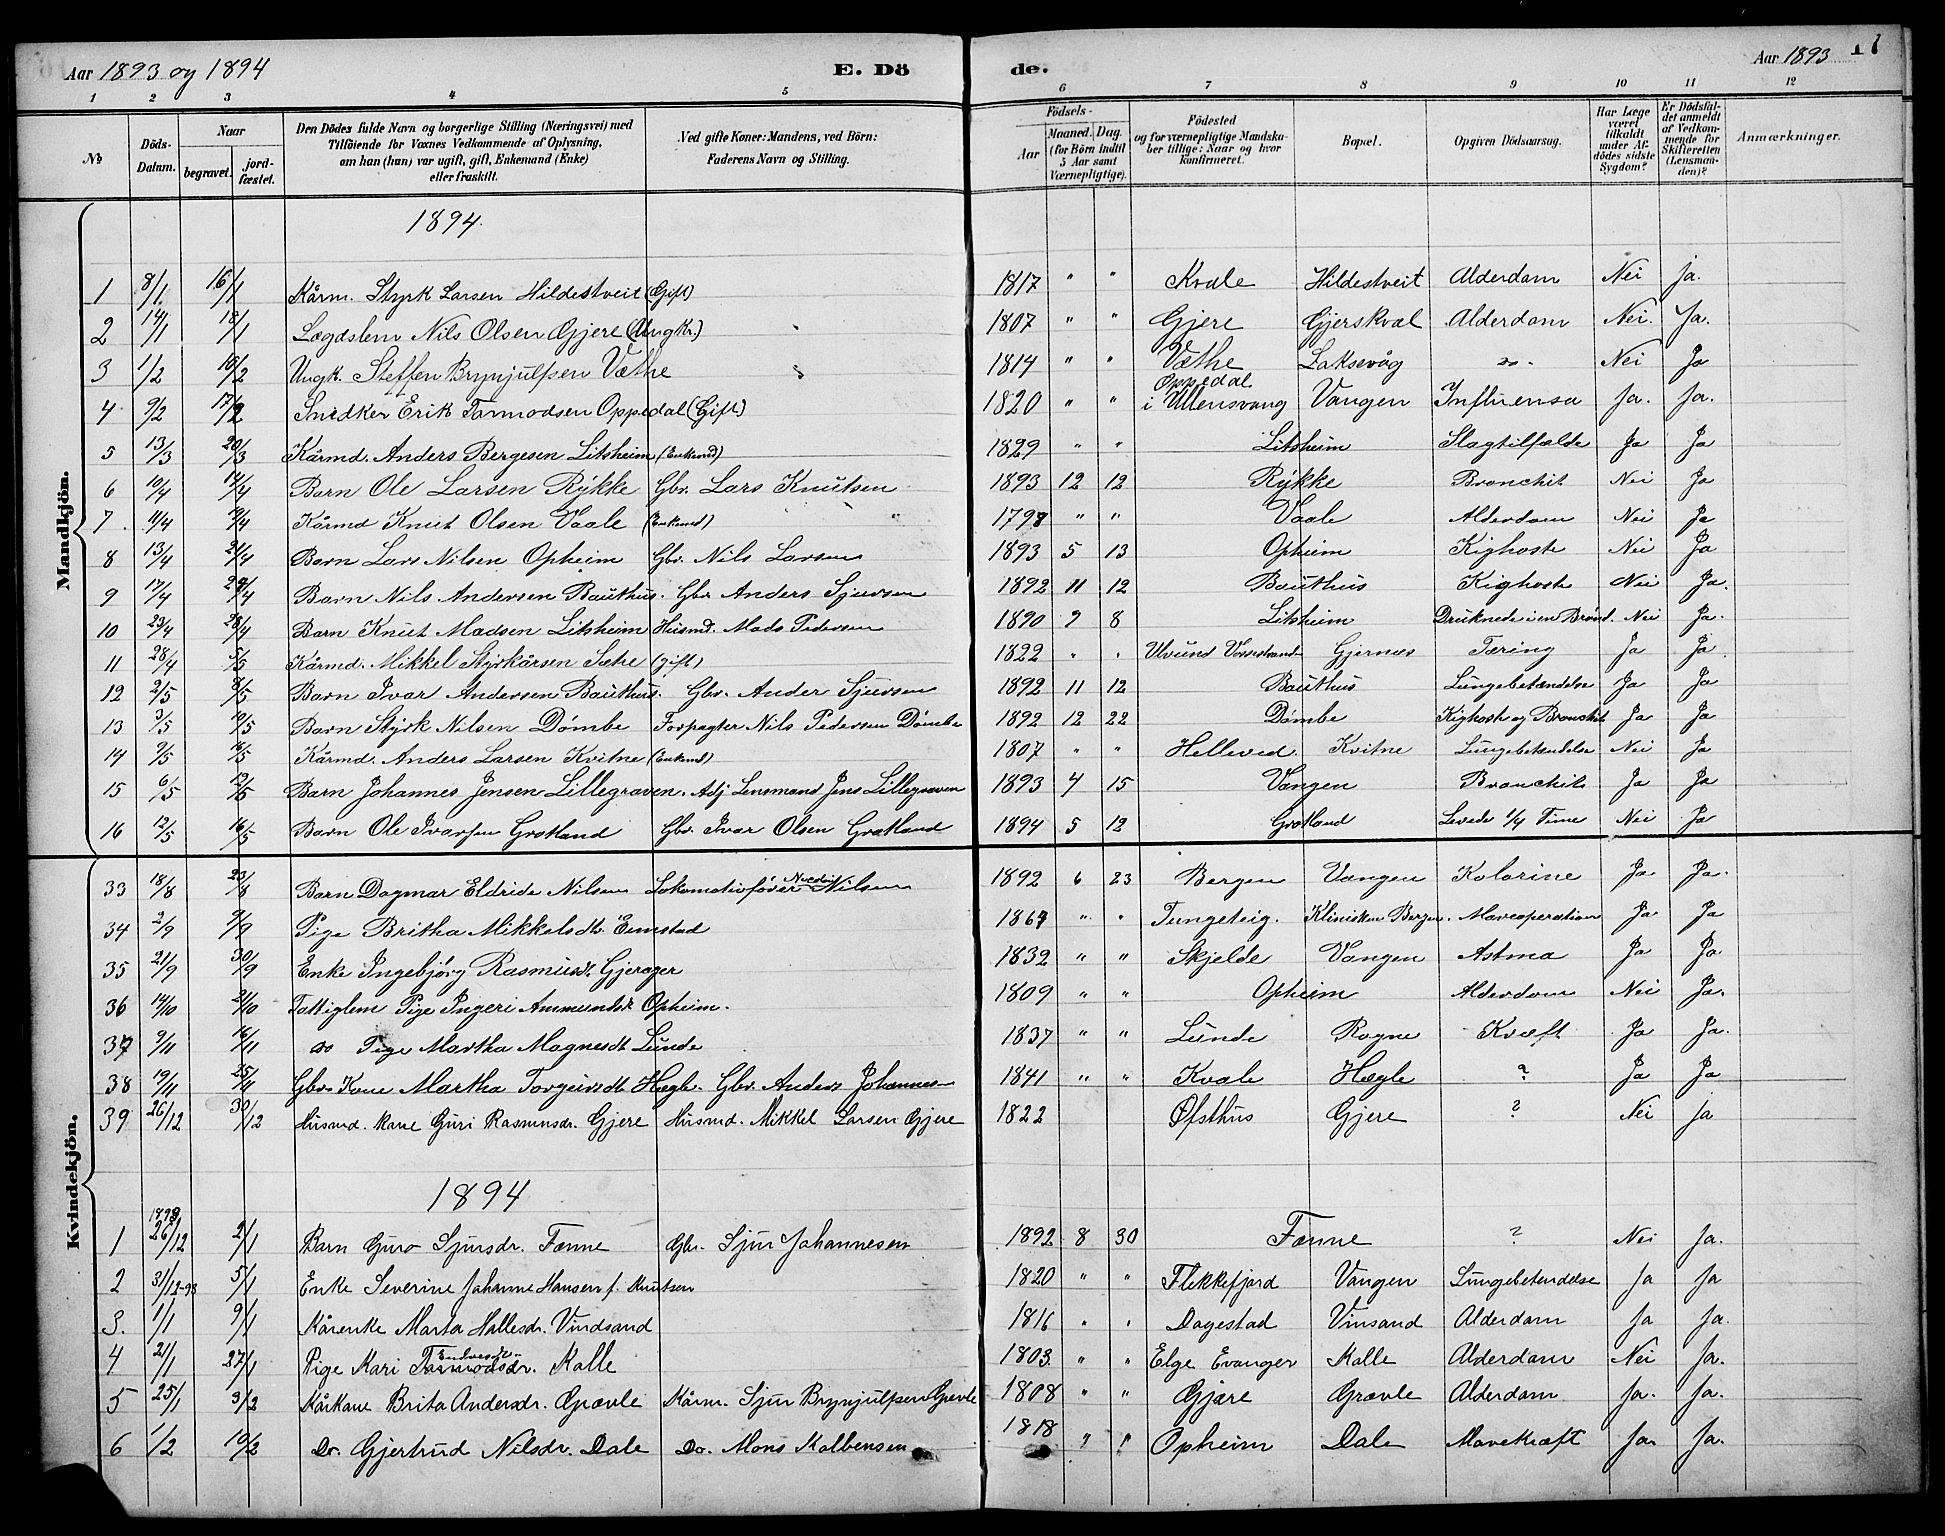 Aar 1893 og 1894 E. Dö de. Aar 1893 17
1 2 3 4 5 6 7 8 9 10 11 12
No Döds-Datum. Naar begravet. jordfæstet. Den Dödes fulde Navn og borgerlige Stilling (Næringsvei) med Tilföiende for Voxnes Vedkommende af Oplysning, om han (hun) var ugift, gift, Enkemand (Enke) eller fraskilt. Ved gifte Koner: Mandens, ved Börn: Faderens Navn og Stilling. Födsels- Aar Maaned. Dag. (for Börn indtil 5 Aar samt Værnepligtige). Födested og for værnepligtige Mandskaber tillige: Naar og hvor Konfirmeret. Bopæl. Opgiven Dödsaarsag. Har Læge været tilkaldt under Afdödes sidste Sygdom? Er Dödsfaldet anmeldt af Vedkommende for Skifteretten (Lensmanden)? Anmærkninger.
Mandkjön.
1894.
1 8/1 16/1 Kårm. Styrk Larsen Hildestveit (Gift) 1817 " " Kvale Hildestveit Alderdom Nei ja.
2 14/1 18/1 Lægdslem Nils Olsen Gjere (Ungkr.) 1807 " " Gjere Gjerskval Alderdom Nei. Ja.
3 1/2 16/2 Ungk. Steffen Brynjulfsen Væthe 1814 " " Væthe Laksevåg do. Nei Ja
4 9/2 17/2 Snedker Erik Tormodsen Oppedal (Gift) 1820 " " Oppedal i Ullensvang Vangen Influensa Ja. Ja.
5 13/3 20/3 Kårmd. Anders Bergesen Litsheim (Enkemd) 1829 " " Litsheim Slagtilfælde Ja Ja
6 10/4 14/4 Barn Ole Larsen Rykke Gbr. Lars Knutsen 1893 12 12 Rykke Bronchit Nei Ja
7. 11/4 19/4 Kårmd Knut Olsen Vaale (Enkemd) 1798 " " Vaale Alderdom Nei Ja
8 13/4 21/4 Barn Lars Nilsen Opheim Gbr. Nils Larsen 1893 5 13 Opheim Kighoste Nei Ja
9 17/4 24/4 Barn Nils Andersen Bauthus. Gbr Anders Sjursen 1892 11 12 Bauthus Kighoste Nei Ja.
10 23/4 28/4 Barn Knut Madsen Litsheim Husmd. Mads Pedersen 1890 9 8 Litsheim Druknede i en Brønd. Nei Ja.
11 28/4 5/5 Kårmd. Mikkel Styrkårsen Sæthe (gift) 1822 " " Ulvund Vossestrand Gjernes Tæring Ja Ja
12 2/5 8/5 Barn Ivar Andersen Bauthus. Gbr. Ander Sjursen 1892 11 12 Bauthus Lungebetændelse Ja Ja
13 3/5 10/5 Barn Styrk Nilsen Dømbe Forpagter Nils Pedersen Dømbe 1892 12 22 Dømbe Kighoste og Bronchit Ja Ja
14 9/5 Kårmd. Anders Larsen Kvitne (Enkemd) 1807 " " Helleved. Kvitne Lungebetendelse Nei Ja
15 6/5 12/5 Barn Johannes Jensen Lillegraven. Adj Lensmand Jens Lillegraven 1893 4 15 Vangen Bronchit Ja Ja
16 12/5 16/5 Barn Ole Ivarsen Grotland Gbr. Ivar Olsen Grotland 1894 5 12 Grotland Levede 1/4 Time Nei Ja
Kvindekjön.
33 18/8 23/8 Barn Dagmar Eldride Nilsen Lokomotivfører Nilsen 1892 6 23 Bergen Vangen Kolorine Ja Ja.
34 2/9 9/9 Pige Britha Mikkelsdt. 1867 " " Tungeteig. Kliniken Bergen. Maveoperation Ja Ja
35 21/9 30/9 Enke Ingebjørg Rasmusdt. Gjerager 1832 " " Skjelde Vangen Astma Ja Ja
36 14/10 21/10 Fattiglem Pige Ingeri Ammundsdt Opheim. 1809 " " Opheim Alderdom Nei Ja.
37 9/11 16/11 do Pige Martha Magnesdt Lunde 1837 " " Lunde Rogne Kræft Ja Ja.
38 19/11 25/11 Gbr. Kone Martha Torgeirsdt Hægle. Gbr. Anders Johannes 1841 " " Kvale Hægle ? Ja Ja
39 26/12 30/12 Husmd. kone Guri Rasmusdr. Gjere Husmd. Mikkel Larsen Gjere 1822 Øfsthus Gjere ? Nei Ja
1894
1 1893 26/12 2/1 Barn Guro Sjursdr. Fenne Gbr. Sjur Johannesen 1892 8 30 Fenne ? Nei Ja.
2 31/12-93 5/1 Enke Severine Johanne Hansen f. Knutsen 1820 " " Flekkefjord Vangen Lungebetendelse Ja Ja
3. 1/1 9/1 Kårenke Marta Hallesdr. Vindsand 1816 " " Dagestad Vinsand Alderdom Ja Ja.
4 21/1 27/1 Pige Kari Tormodsdr. Kalle 1803. " " Elge Evanger Kalle Alderdom Nei Ja.
5 25/1 3/2 Kårkone Brita Andersdr. Grævle Kårm. Sjur Brynjulfsen Grevle 1808 " " Gjære Grævle Alderdom Ja. Ja.
6 1/2 10/2 Do. Gjertrud Nilsdr. Dale Do. Mons Kolbensen 1818 " " Opheim Dale Mavekræft Ja. Ja.